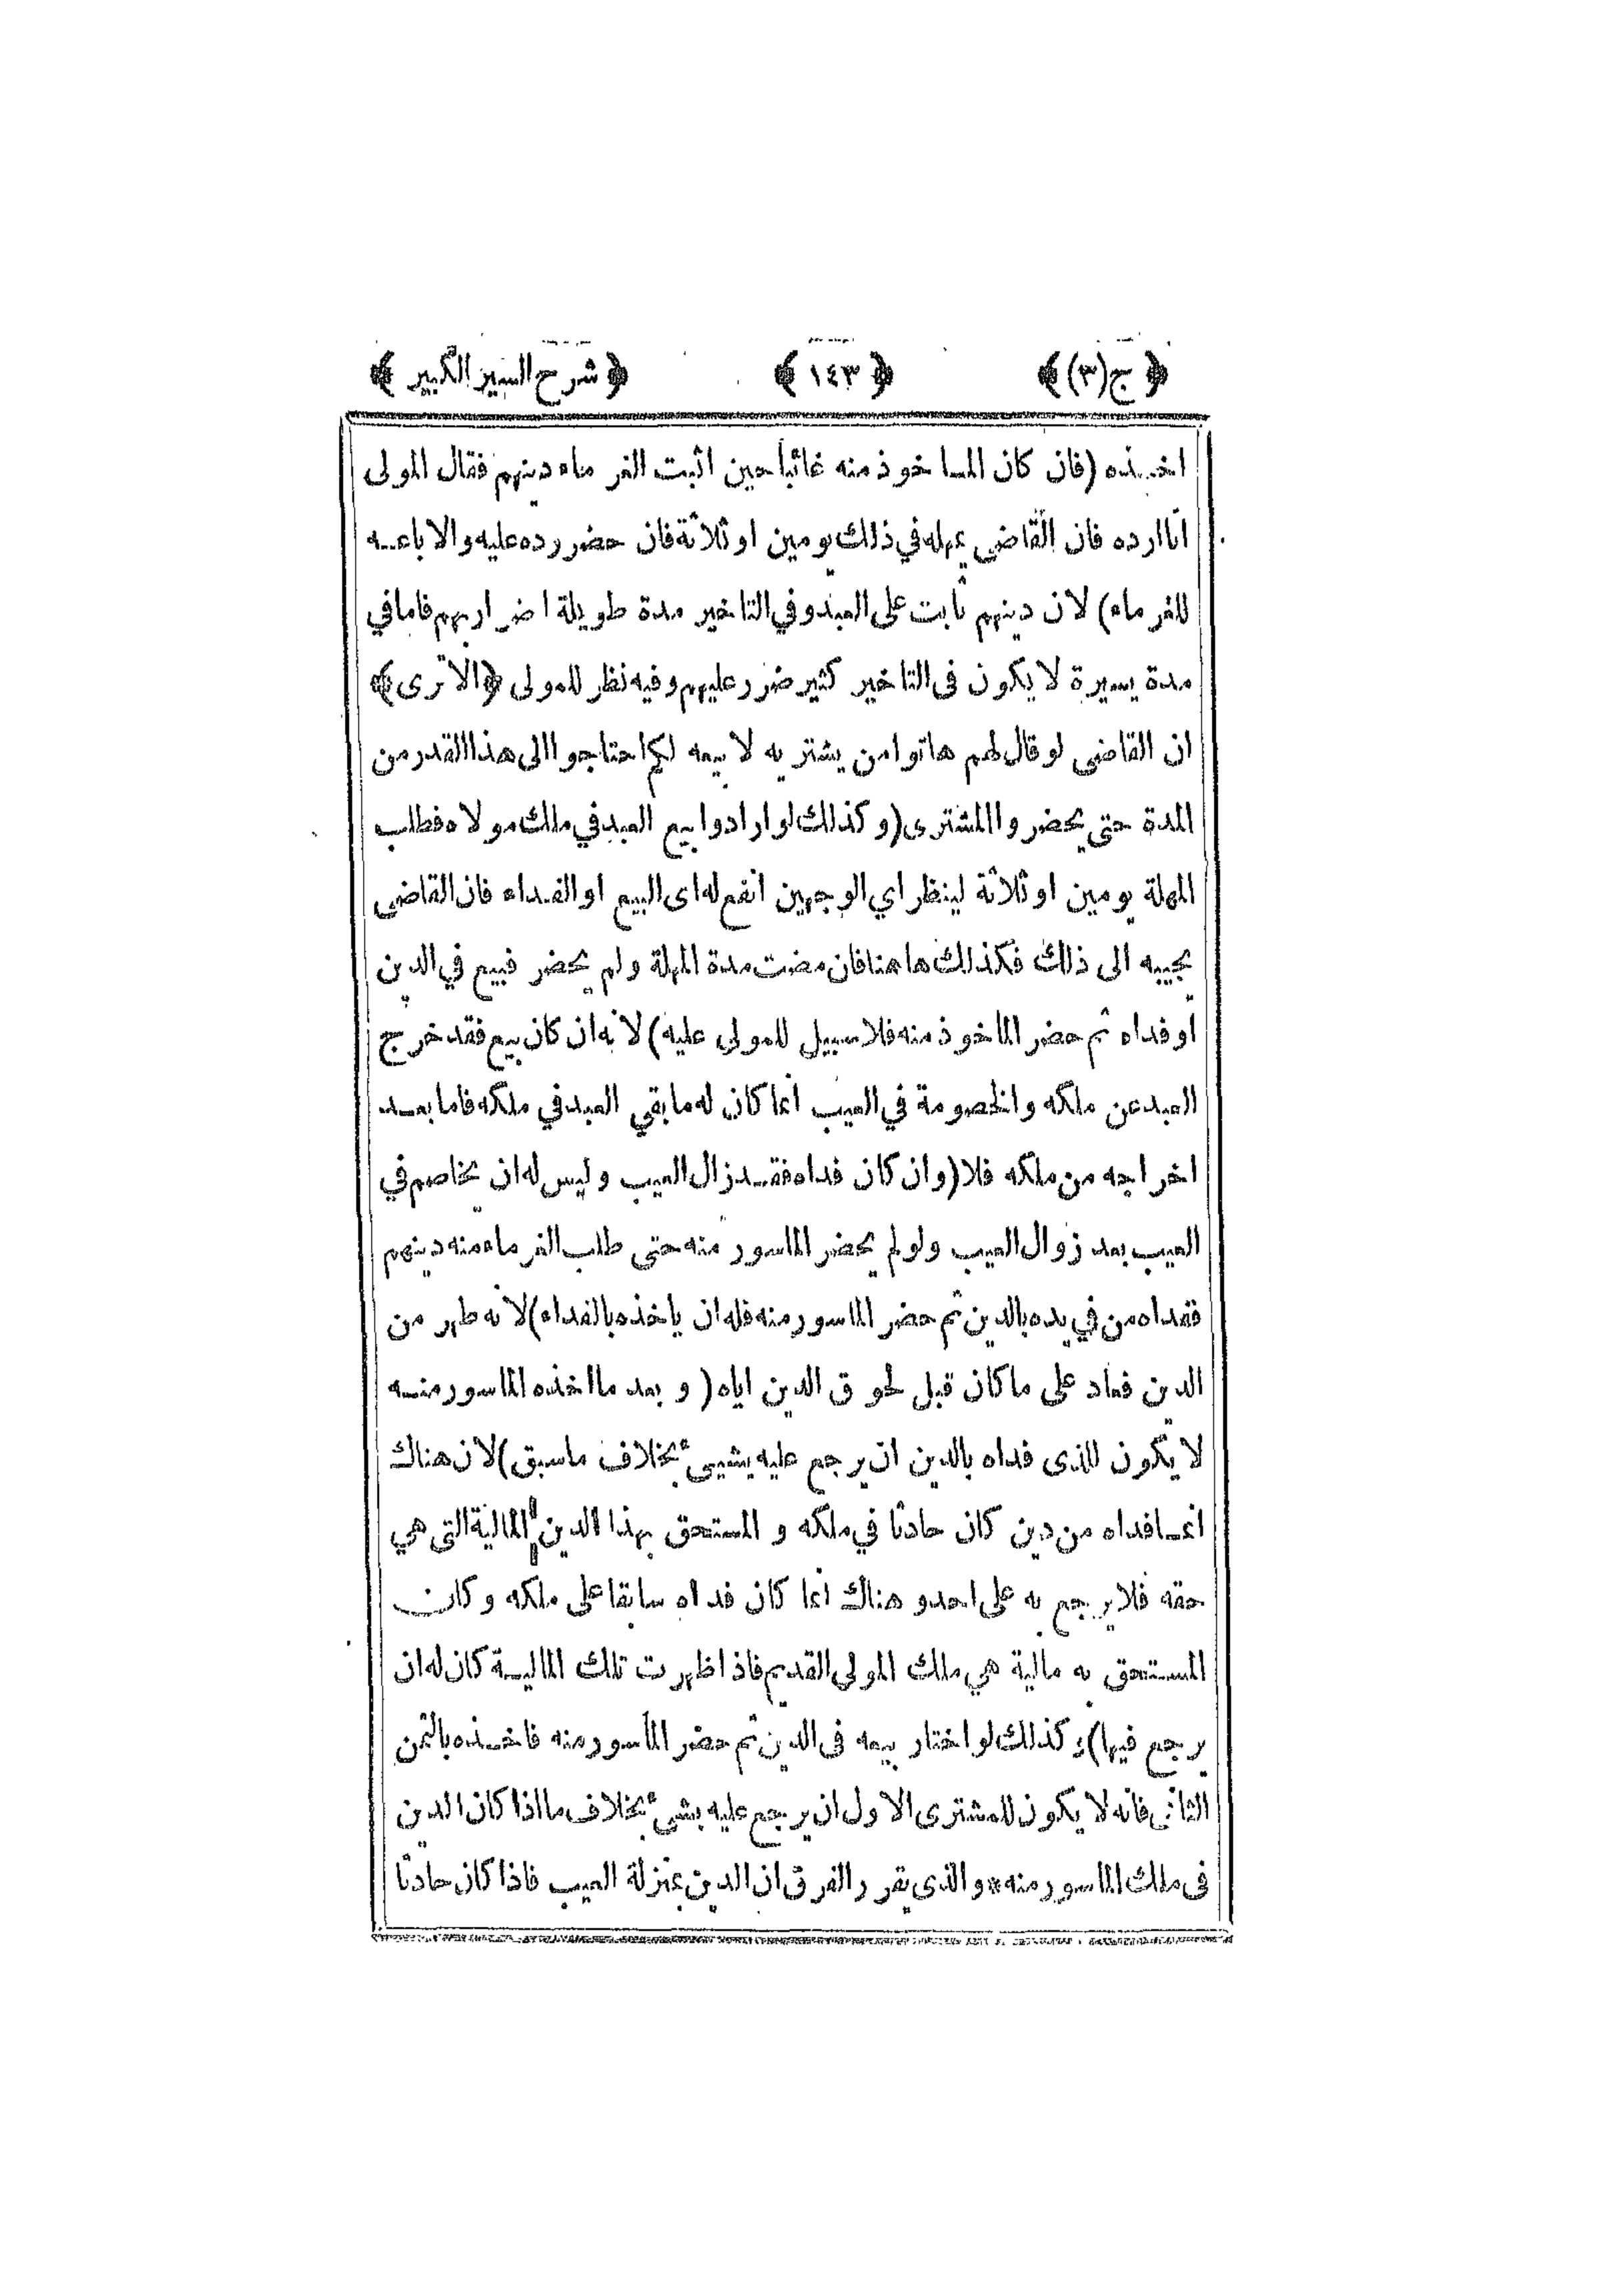 ﴿ ج(٣) ﴾ ﴿ ١٤٣ ﴾ ﴿ شرح السير الكبير ﴾
اخذه (فان كان الماخوذ منه غائبا حين اثبت الغرماء دينهم فقال المولى
انا ارده فان القاضى يمهله في ذلك يومين او ثلاثة فان حضر رده عليه والا باعه
للغرماء) لان دينهم ثابت على العبد وفي التاخير مدة طويلة اضرار بهم فاما في
مدة يسيرة لا يكون فى التاخير كثير ضرر عليهم وفيه نظر للمولى ﴿الا ترى﴾
ان القاضى لو قال لهم هاتوا من يشتريه لابيعه لكم احتاجوا الى هذا القدر من
المدة حتى يحضروا المشترى (وكذلك لو ارادوا بيع العبد في ملك مولاه فطلب
المهلة يومين او ثلاثة لينظر اي الوجهين انفع له اى البيع او الفداء فان القاضى
يجيبه الى ذلك فكذلك هاهنا فان مضت مدة المهلة ولم يحضر فبيع في الدين
او فداه ثم حضر الماخوذ منه فلا سبيل للمولى عليه) لانه ان كان بيع فقد خرج
العبد عن ملكه والخصومة في العيب انما كان له ما بقي العبد في ملكه فاما بعد
اخراجه من ملكه فلا (وان كان فداه فقد زال العيب وليس له ان يخاصم في
العيب بعد زوال العيب ولو لم يحضر الماسور منه حتى طلب الغرماء منه دينهم
ففداه من في يده بالدين ثم حضر الماسور منه فله ان ياخذه بالفداء) لانه طهر من
الدين فعاد على ما كان قبل لحوق الدين اياه (وبعد ما اخذه الماسور منه
لا يكون للذى فداه بالدين ان يرجع عليه بشيئ بخلاف ما سبق) لان هناك
انما فداه من دين كان حادثا في ملكه و المستحق بهذا الدين المالية التى هي
حقه فلا يرجع به على احد و هناك انما كان فداه سابقا على ملكه وكان
المستحق به مالية هي ملك المولى القديم فاذا ظهرت تلك المالية كان له ان
يرجع فيها) وكذلك لو اختار بيعه فى الدين ثم حضر الماسور منه فاخذه بالثمن
الثانى فانه لا يكون للمشترى الاول ان يرجع عليه بشئ بخلاف ما اذا كان الدين
فى ملك الماسور منه * والذى يقرر الفرق ان الدين بمنزلة العيب فاذا كان حادثا